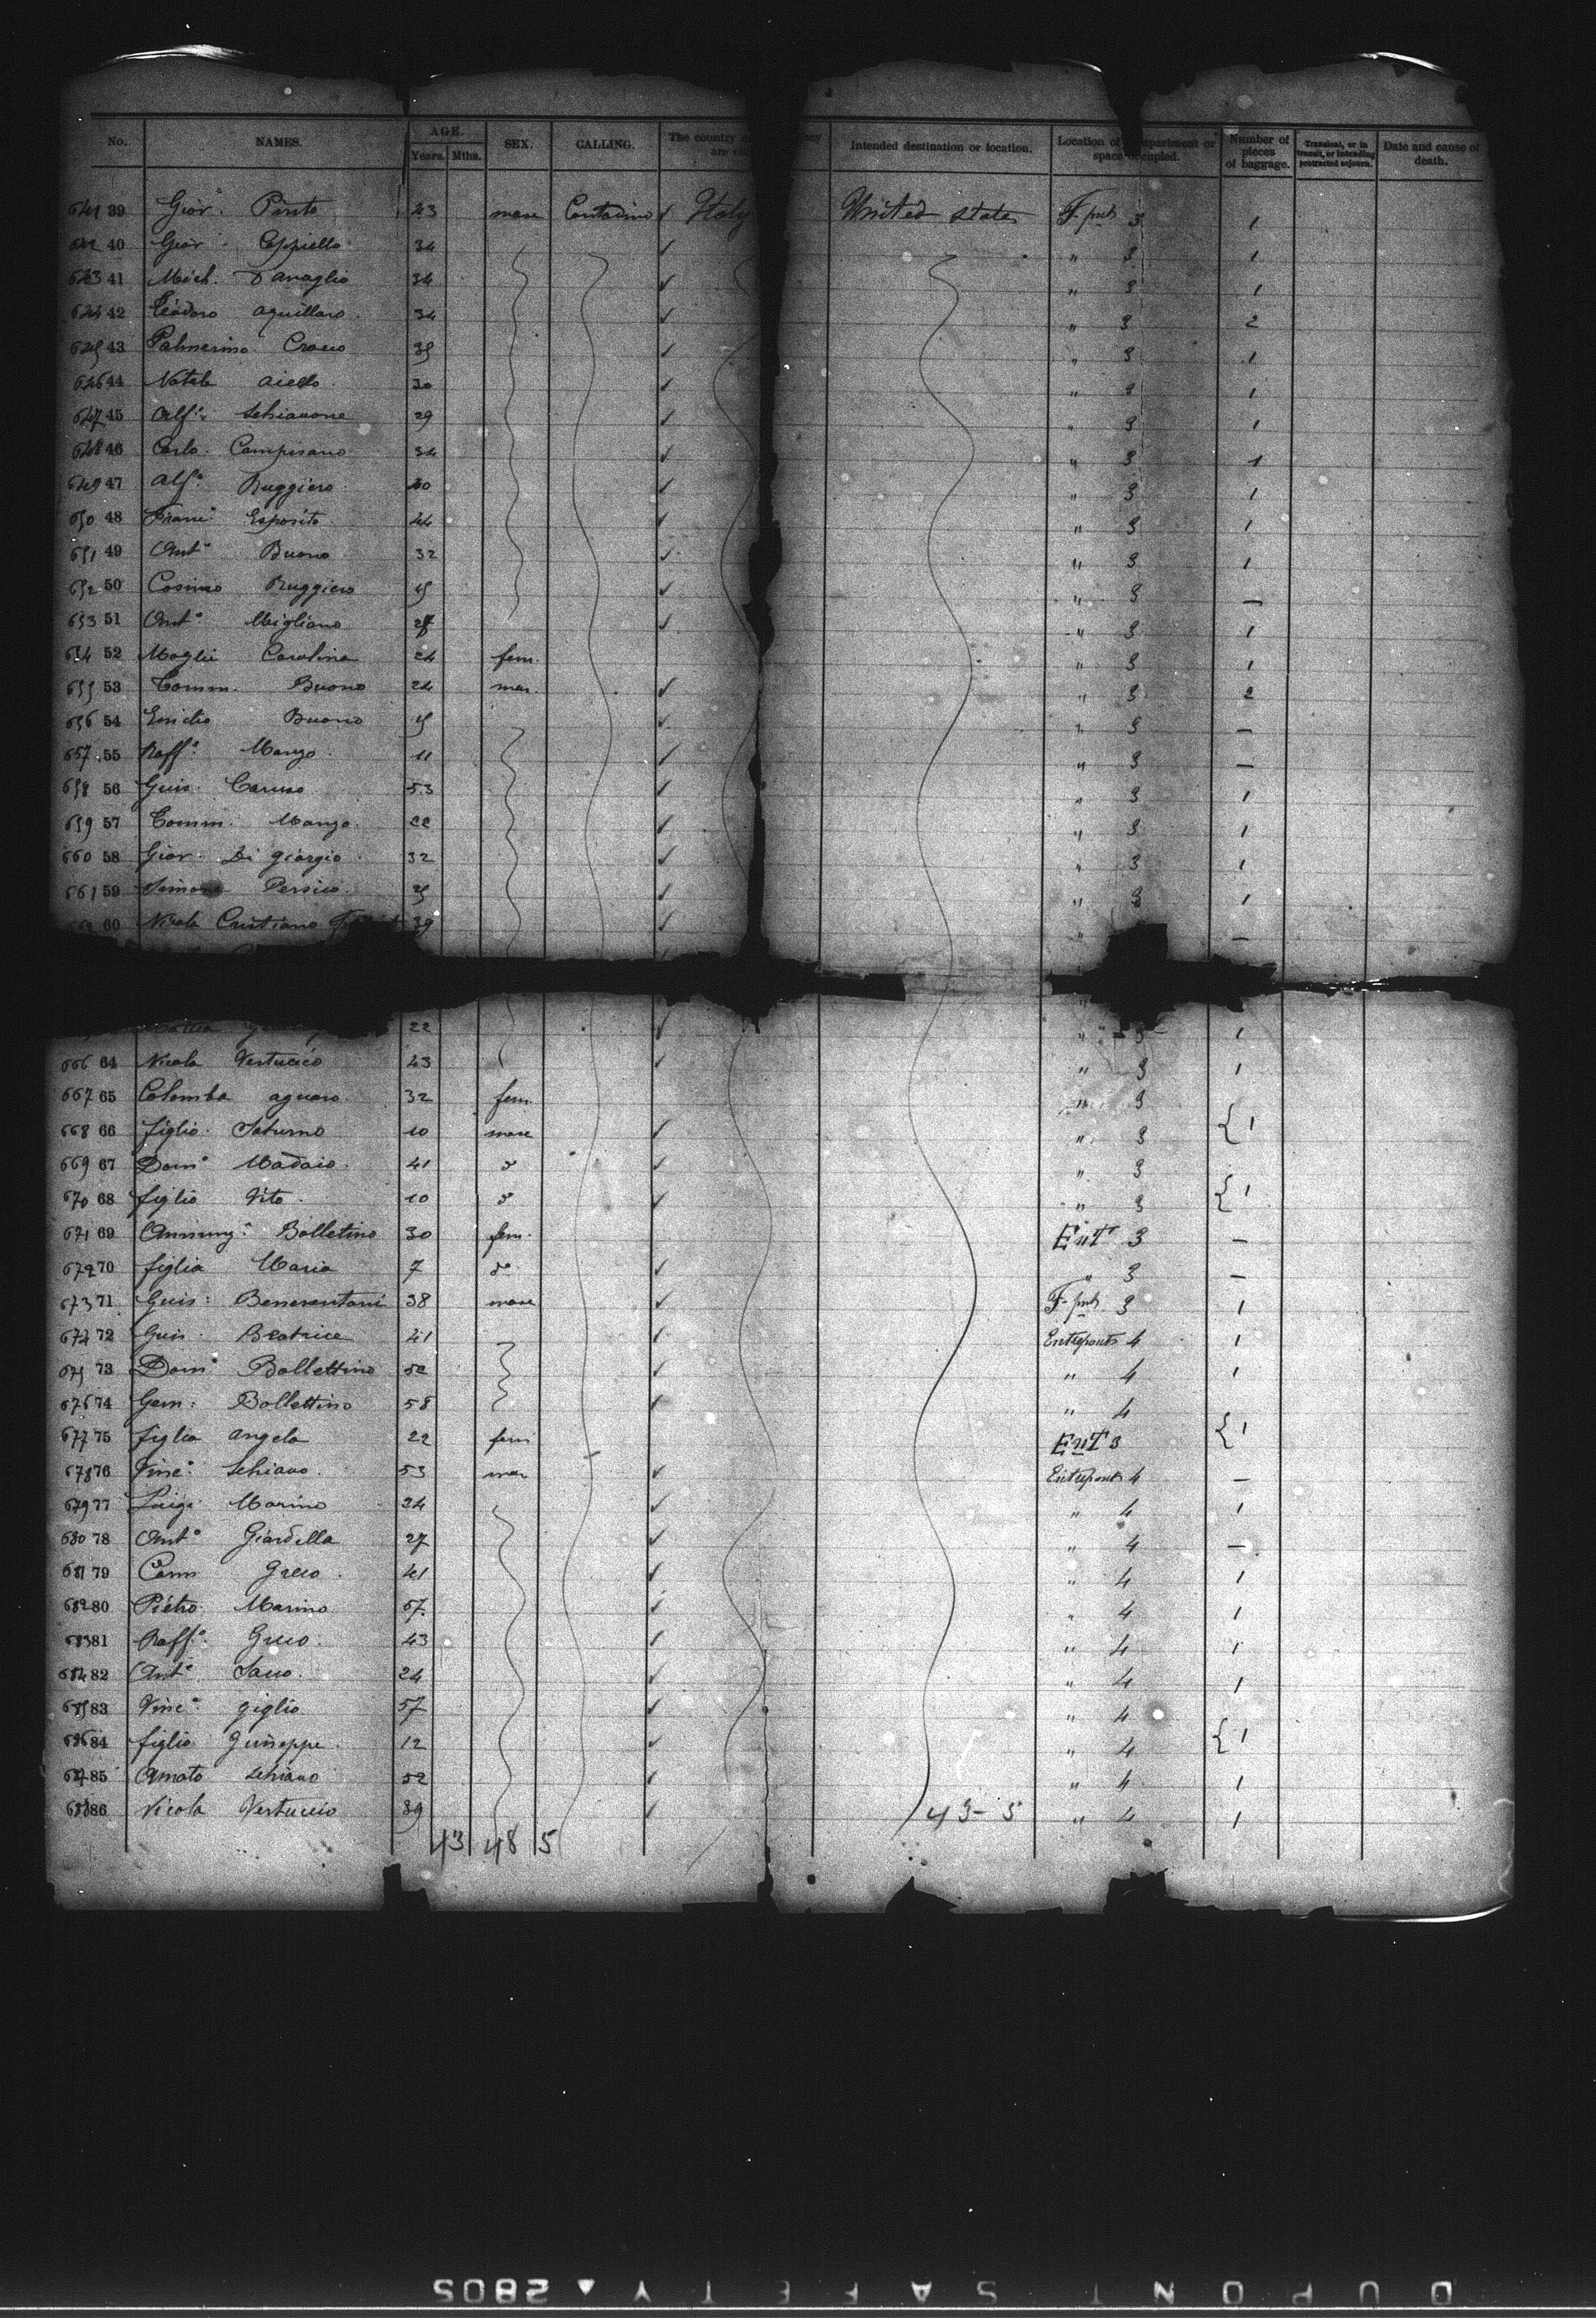 No. NAMES. AGE. Years. Mths. SEX. CALLING. The country are Intended destination or location. Location of compartment or space occupied. Number of pieces of baggage. Transient, or in transit, or intending protracted sojourn. Date and cause of death.
641 39 Giov. Pinto 43 mare Contadino Italy United states F. pnt 3 1
642 40 Giov. 34 " 3 1
643 41 Mich. Danaglio 34 " 3 1
644 42 Teodoro aquillaro 34 " 3 2
645 43 Palmerino Croceo 35 " 3 1
646 44 Natale aiello 30 " 3 1
647 45 Alf.° Schiavone 29 " 3 1
648 46 Carlo Campisano 34 " 3 1
649 47 Alf.° Ruggiero 40 " 3 1
650 48 Franc.° Esposito 44 " 3 1
651 49 Ant.° Buono 32 " 3 1
652 50 Cosimo Ruggiero 45 " 3 —
653 51 Ant.° Migliano 27 " 3 1
654 52 Moglie Carolina 24 fem. " 3 1
655 53 Tomm. Buono 24 mar. " 3 2
656 54 Emidio Buono 15 " 3 —
657 55 Raff.° Manzo 11 " 3 —
658 56 Gius. Caruso 53 " 3 1
659 57 Tomm. Manzo 22 " 3 1
660 58 Giov. Di giorgio 32 " 3 1
661 59 Simone Persico 35 " 3 1
60 Nicola Cristiano 39 " —
22 " 3 1
666 64 Nicola Vertuccio 43 " 3 1
667 65 Colomba aguaro 32 fem. " 3
668 66 figlio Saturno 10 mare " 3 { 1
669 67 Dom.° Madaio 41 d° " 3
670 68 figlio Vito 10 d° " 3 { 1
671 69 Annunz.ª Bolletino 30 fem. Ent 3 —
672 70 figlia Maria 7 d° " 3 —
673 71 Gius. Beneventani 38 mare F. pnt 3 1
674 72 Gius. Beatrice 41 Entreponts 4 1
675 73 Dom.° Bollettino 52 " 4 1
676 74 Gem. Bollettino 58 " 4
677 75 figlia angela 22 fem Ent 3 { 1
678 76 Vinc.° Schiavo 53 mar Entrepont 4 —
679 77 Luigi Marino 24 " 4 1
680 78 Ant.° Giardella 27 " 4 —
681 79 Carm Greco 41 " 4 1
682 80 Pietro Marino 57 " 4 1
683 81 Raff.° Greco 43 " 4 1
684 82 Ant.° Sacco 24 " 4 1
685 83 Vinc.° giglio 57 " 4
686 84 figlio Guiseppe 12 " 4 { 1
687 85 Amato Schiavo 52 " 4 1
688 86 Nicola Vertuccio 39 43-5 " 4 1
43 48 5
DUPONT SAFETY ▲ 2805